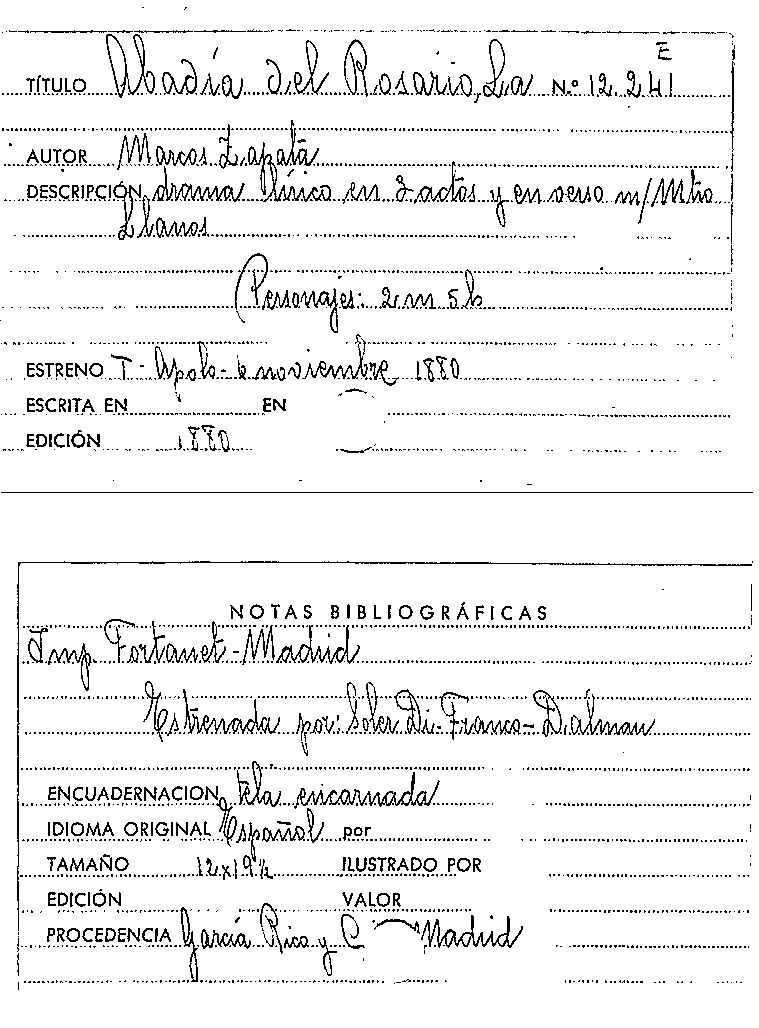 E
TÍTULO Abadía del Rosario, La N.º 12.241
AUTOR Marcos Zapata
DESCRIPCIÓN drama lírico en 3 actos y en verso m/Mtro
Llanos
Personajes: 2 m 5 h
ESTRENO T- Apolo- 6 noviembre 1880
ESCRITA EN EN
EDICIÓN 1880
NOTAS BIBLIOGRÁFICAS
Imp. Fortanet-Madrid
Estrenada por: Soler Di-Franco-Dalmau
ENCUADERNACION tela encarnada
IDIOMA ORIGINAL Español por
TAMAÑO 12x19½ ILUSTRADO POR
EDICIÓN VALOR
PROCEDENCIA García Rico y C. Madrid